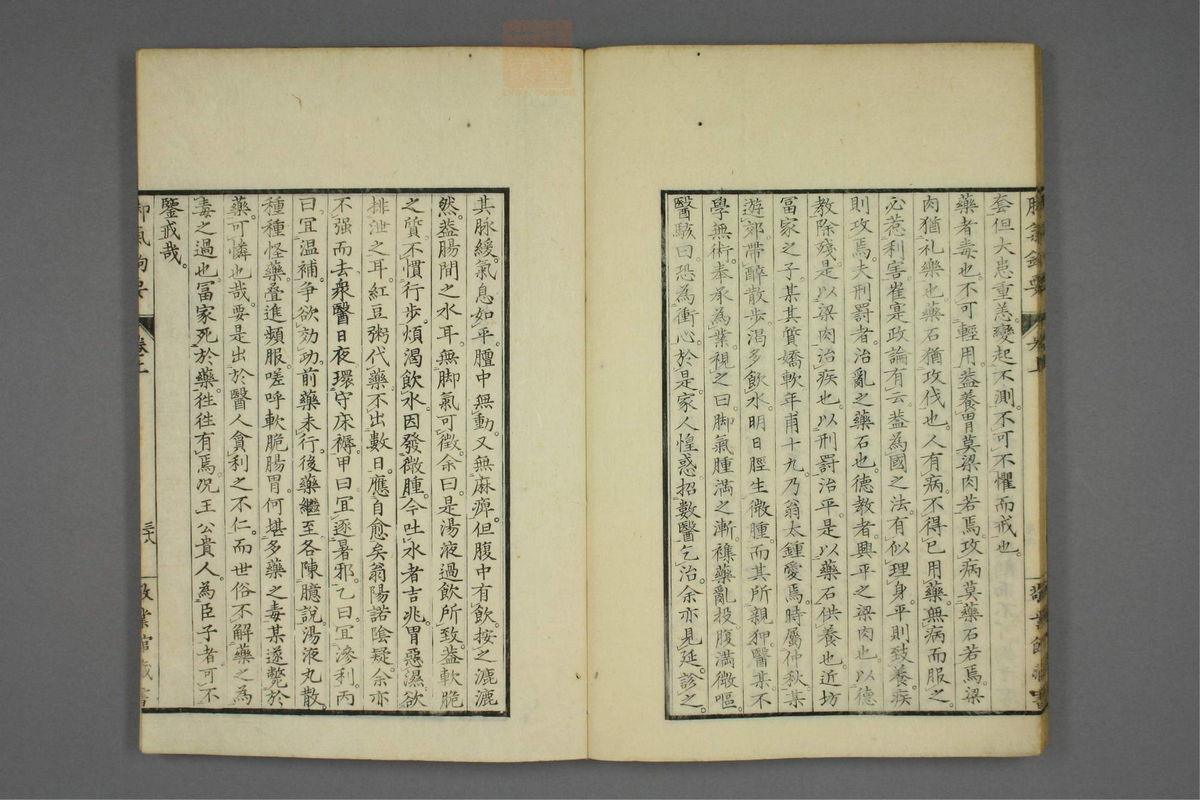 套但大患重恙變起不測不可不懼而戒也
藥者毒也不可輕用蓋養胃莫粱肉若焉攻病莫藥石若焉粱
肉猶礼樂也藥石猶攻伐也人有病不得已用藥無病而服之
必惹利害崔寔政論有云蓋為國之法有似理身平則致養疾
則攻焉夫刑罰者治亂之藥石也德教者興平之粱肉也以德
教除殘是以粱肉治疾也以刑罰治平是以藥石供養也近坊
冨家之子某其質嬌軟年甫十九乃翁太鍾愛焉時屬仲秋某
遊郊帶醉散歩渇多飲水明日脛生微腫而其所親狎醫某不
學無術奉承為業視之曰脚氣腫滿之漸襍藥亂投腹滿微嘔
醫駭曰恐為衝心於是家人惶惑招數醫乞治余亦見延診之
其脉緩氣息如平膻中無動又無麻痺但腹中有飲按之漉漉
然蓋腸間之水耳無脚氣可徴余曰是湯液過飲所致蓋軟脆
之質不慣行歩煩渇飲水因發微腫今吐水者吉兆胃惡濕欲
排泄之耳紅豆粥代藥不出數日應自愈矣翁陽諾陰疑余亦
不强而去衆醫日夜環守床褥甲曰宜逐暑邪乙曰宜滲利丙
曰宜温補争欲効功前藥未行後藥繼至各陳臆說湯液丸散
種種怪藥疊進頻服嗟呼軟脆腸胃何堪多藥之毒某遂斃於
藥可憐也哉要是出於醫人貪利之不仁而世俗不解藥之為
毒之過也冨家死於藥徃徃有焉况王公貴人為臣子者可不
鑒戒哉
脚氣鉤要
卷上
三十八